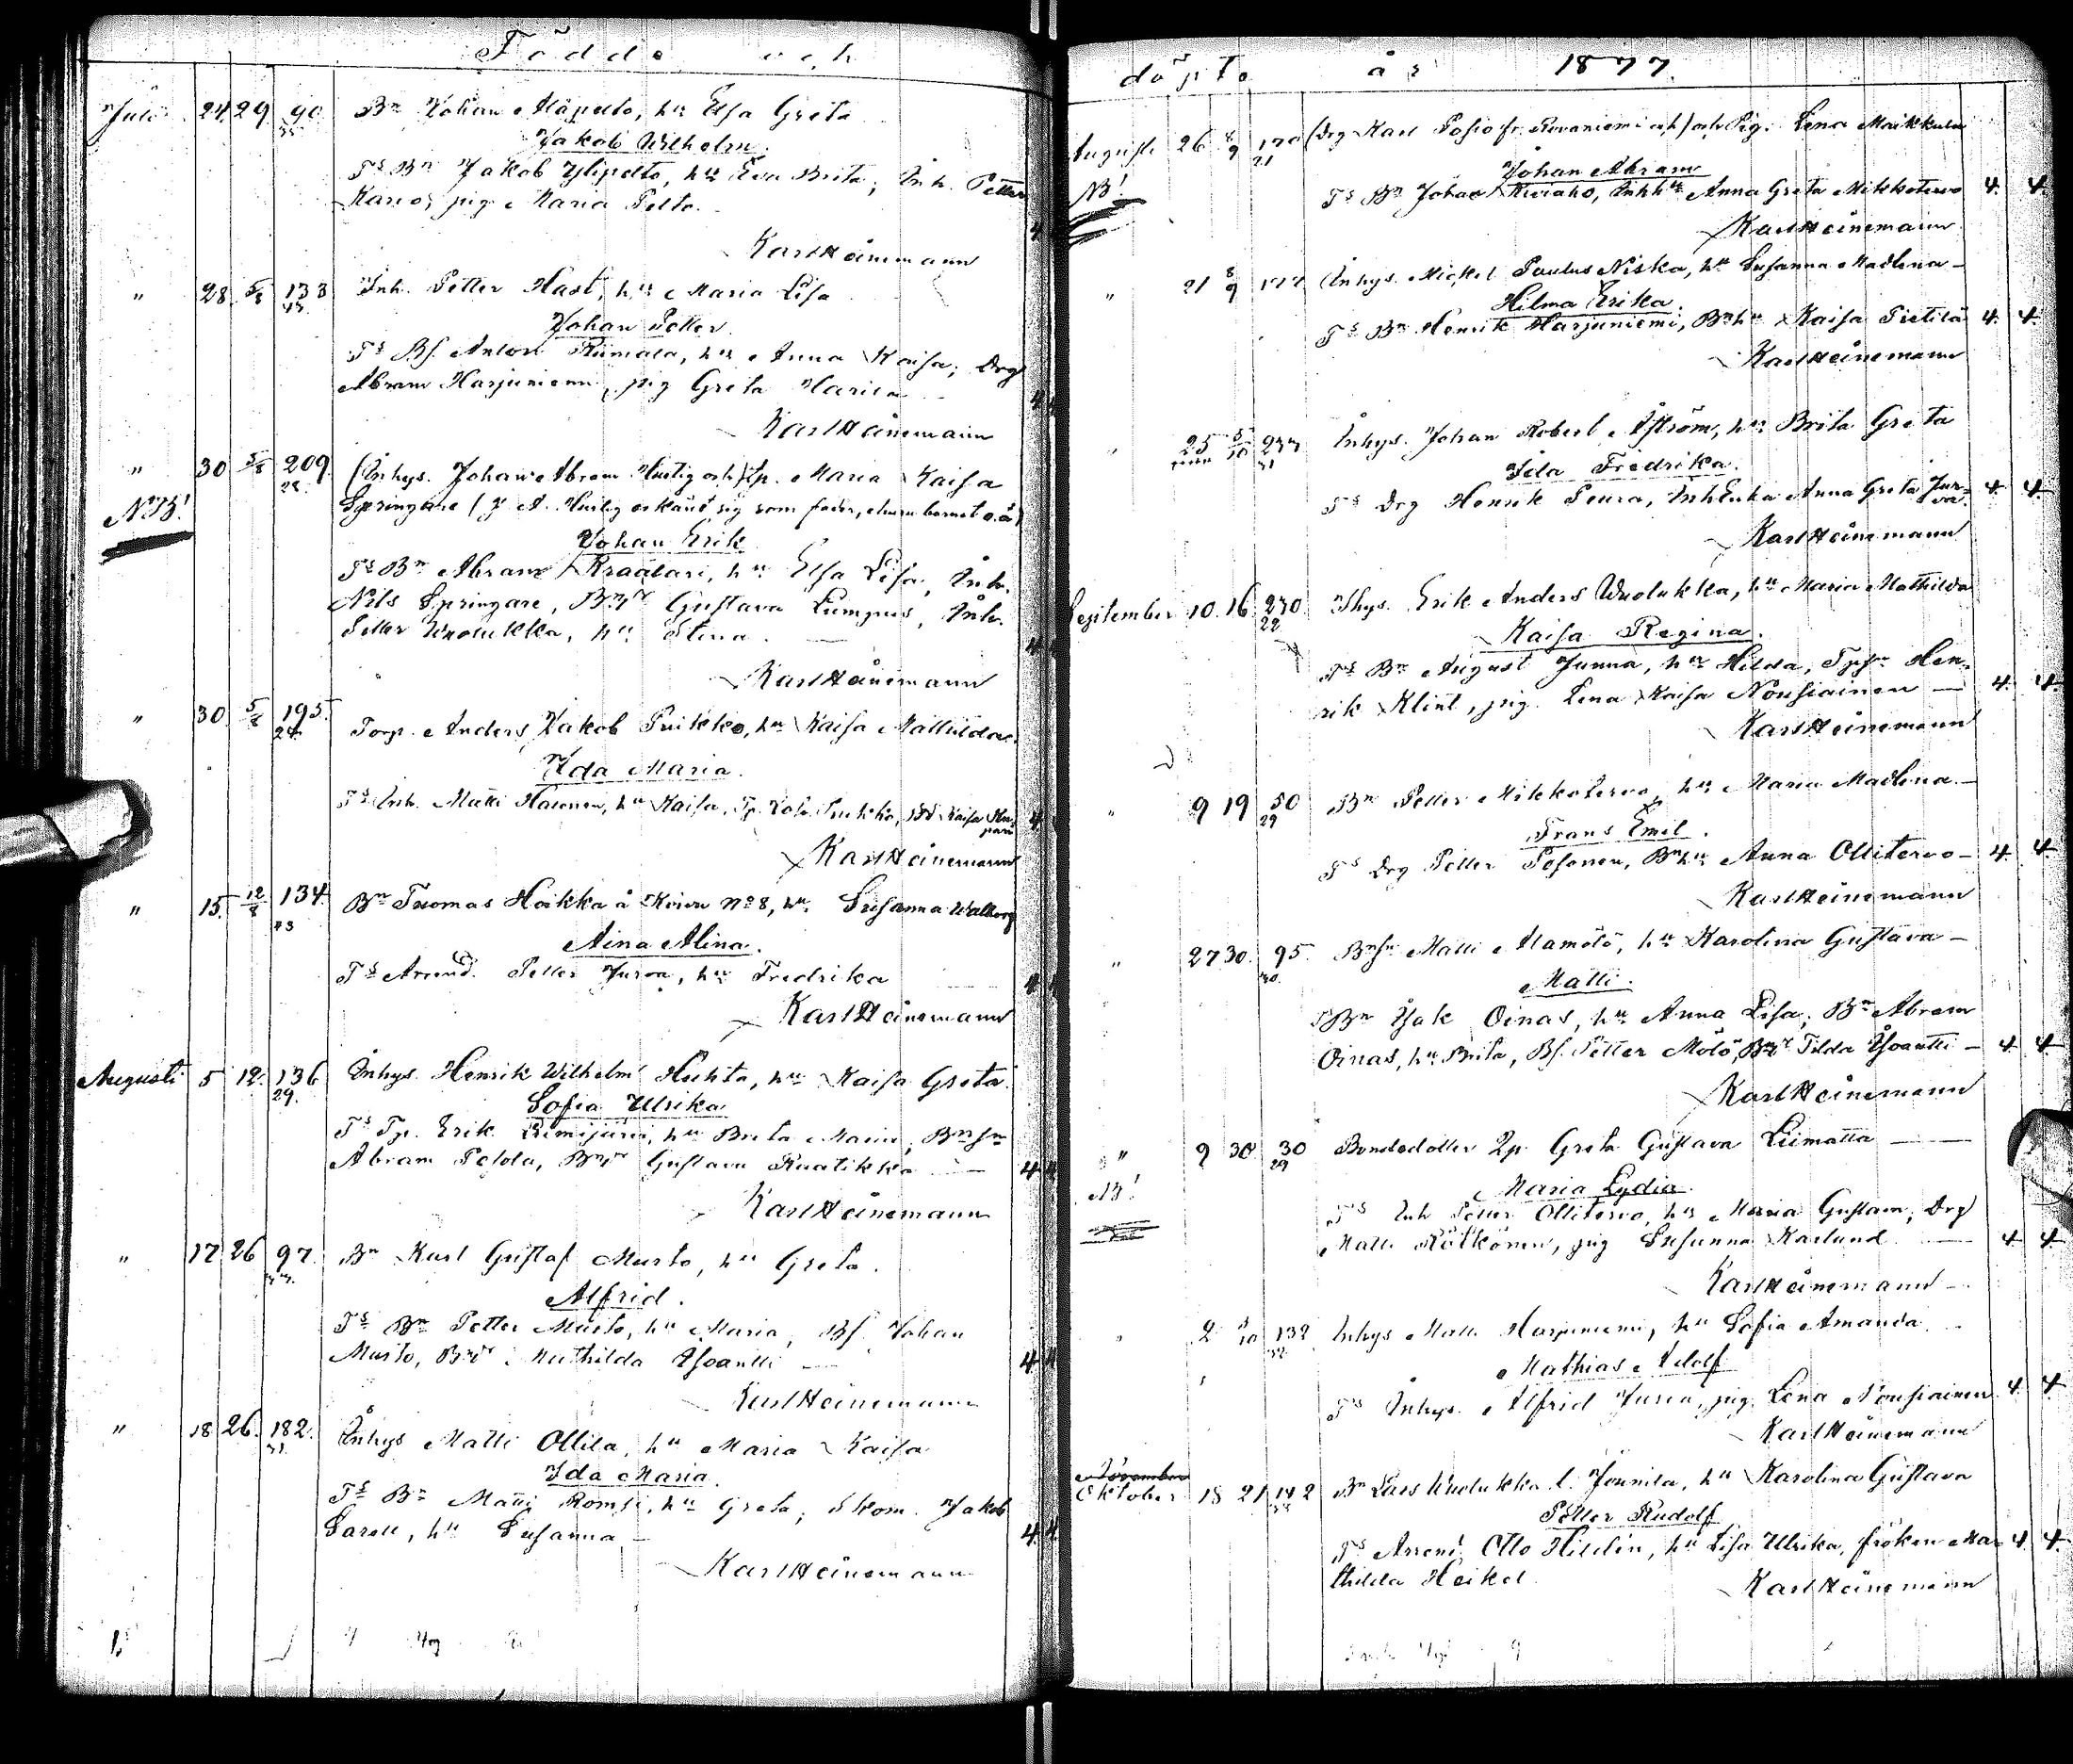 Födde och
Juli 24 29 90 Bn Johan Alapelto, hu Elsa Greta
35
Jakob Wilhelm.
Ts Bn Jakob Ylipelto, hu Eva Brita, Inh. Petter
Kario, pig Maria Pelto.
4
Karl Heinemann
" 28 5/8 133 Inh. Petter Hast, hu Maria Lisa
43
Johan Petter.
Ts Bf. Anton Rimala, hu Anna Kaisa; Drg
Abram Harjuniemi, pig Greta Maria
Karl Heinemann
" 30 5/8 209 (Inhys. Johan Abram Hustig och) Lp. Maria Kaisa
28.
NB! Springare (J. A. Hustig erkänt sig som fader, barnet o.ä)
Johan Erik
Ts Bn Abram Kraatari, hu Elsa Lisa, Inh.
Nils Springare, Gustava Lumpus, Inh.
Petter Wuolukka, hu Stina
Karl Heinemann
" 30 5/8 195 Torp. Anders Jakob Puikko, hu Kaisa Mathilda
24.
Ida Maria.
Ts Inh. Matti Halonen, hu Kaisa, Tp. Puikko, Kaisa
Karl Heinemann
" 15. 12/8 134. Bn Thomas Hoikka å Koivu No 8, hu Susanna Walborg
Aina Alina.
Ts Arrend. Petter Jurva, hu Fredrika
Karl Heinemann
Augusti 5 12. 136 Inhys. Henrik Wilhelm Huhta, hu Kaisa Greta.
29.
Sofia Ulrika
Ts Tp. Erik Kemijärvi, hu Brita Maria, Bnsn
Abram Peldda, Gustava Ruatikka
Karl Heinemann
" 17 26 97. Bn Karl Gustaf Musto, hu Greta.
Alfrid.
Ts Bn Petter Musto, hu Maria, Bf. Johan
Musto, Mathilda Ysoantti
Karl Heinemann
" 18 26. 182. Inhys Matti Ollila, hu Maria Kaisa
Ida Maria.
Ts Bn Matti Romsi, hu Greta, Skom. Jakob
Sarell, hu Susanna
Karl Heinemann
döpte år 1877.
Augusti 26 8/9 170 (Drg Karl Posio fr. Rovaniemi och) och Pig. Lena Maikkula
21
NB! Johan Abram
Ts Bn Johan Kuiraho, Inhhu Anna Greta Mikkotervo 4. 4.
Karl Heinemann
" 21 8/9 177 Inhys. Mickel Paulus Niska, hu Susanna Madlena
Hilma Erika.
Ts Bn Henrik Harjuniemi, Bnhu Kaisa Pietilä 4. 4.
Karl Heinemann
" 25 5/10 277 Inhys. Johan Robert Åström, hu Brita Greta
31
Ida Fredrika.
Ts Drg Henrik Peura, Inh Enka Anna Greta Jurva. 4 4
Karl Heinemann
September 10. 16. 230. Ihys. Erik Anders Wuolukka, hu Maria Mathilda
22
Kaisa Regina.
Ts Bn August Junna, hu Hilda, Tpsn Hen-
rik Klint, pig. Lena Kaisa Nousiainen 4. 4.
Karl Heinemann
" 9 19 50 Bn Petter Mikkotervo, hu Maria Madlena.
29
Frans Emil.
Ts Drg Petter Posonen, Bnhu Anna Ollitervo 4. 4.
Karl Heinemann
" 27 30. 95. Bnsn Matti Alamölö, hu Karolina Gustava
30.
Matti.
Bn Isak Oinas, hu Anna Lisa, Bn Abram
Oinas, hu Brita, Bf. Petter Mölö, Tilda Ysoantti 4 4
Karl Heinemann
" 9 30 30 Bondedotter Lp. Greta Gustava Liimatta
29
NB! Maria Lydia.
Ts Inh Petter Ollitervo, hu Maria Gustava, Drg
Matti Rötkönen, pig Susanna Karlund 4 4
Karl Heinemann
2 /10 132 Inhys Matti Harjuniemi, hu Sofia Amanda
32
Mathias Adolf
Ts Inhys. Alfrid Jurva, pig. Lena Nousiainen 4. 4
Karl Heinemann
November
Oktober 18 21 142 Bn Lars Wuolukka l. Jounila, hu Karolina Gustava
Petter Rudolf
Ts Arrend. Otto Hildén, hu Lisa Ulrika, fröken Ma- 4. 4.
thilda Heikel
Karl Heinemann